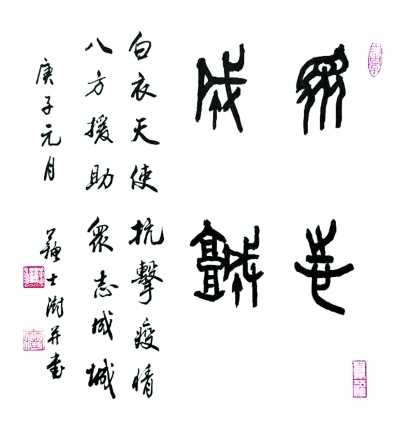 眾志
成城
白衣天使抗擊疫情
八方援助眾志成城
庚子元月
蘇士澍并書